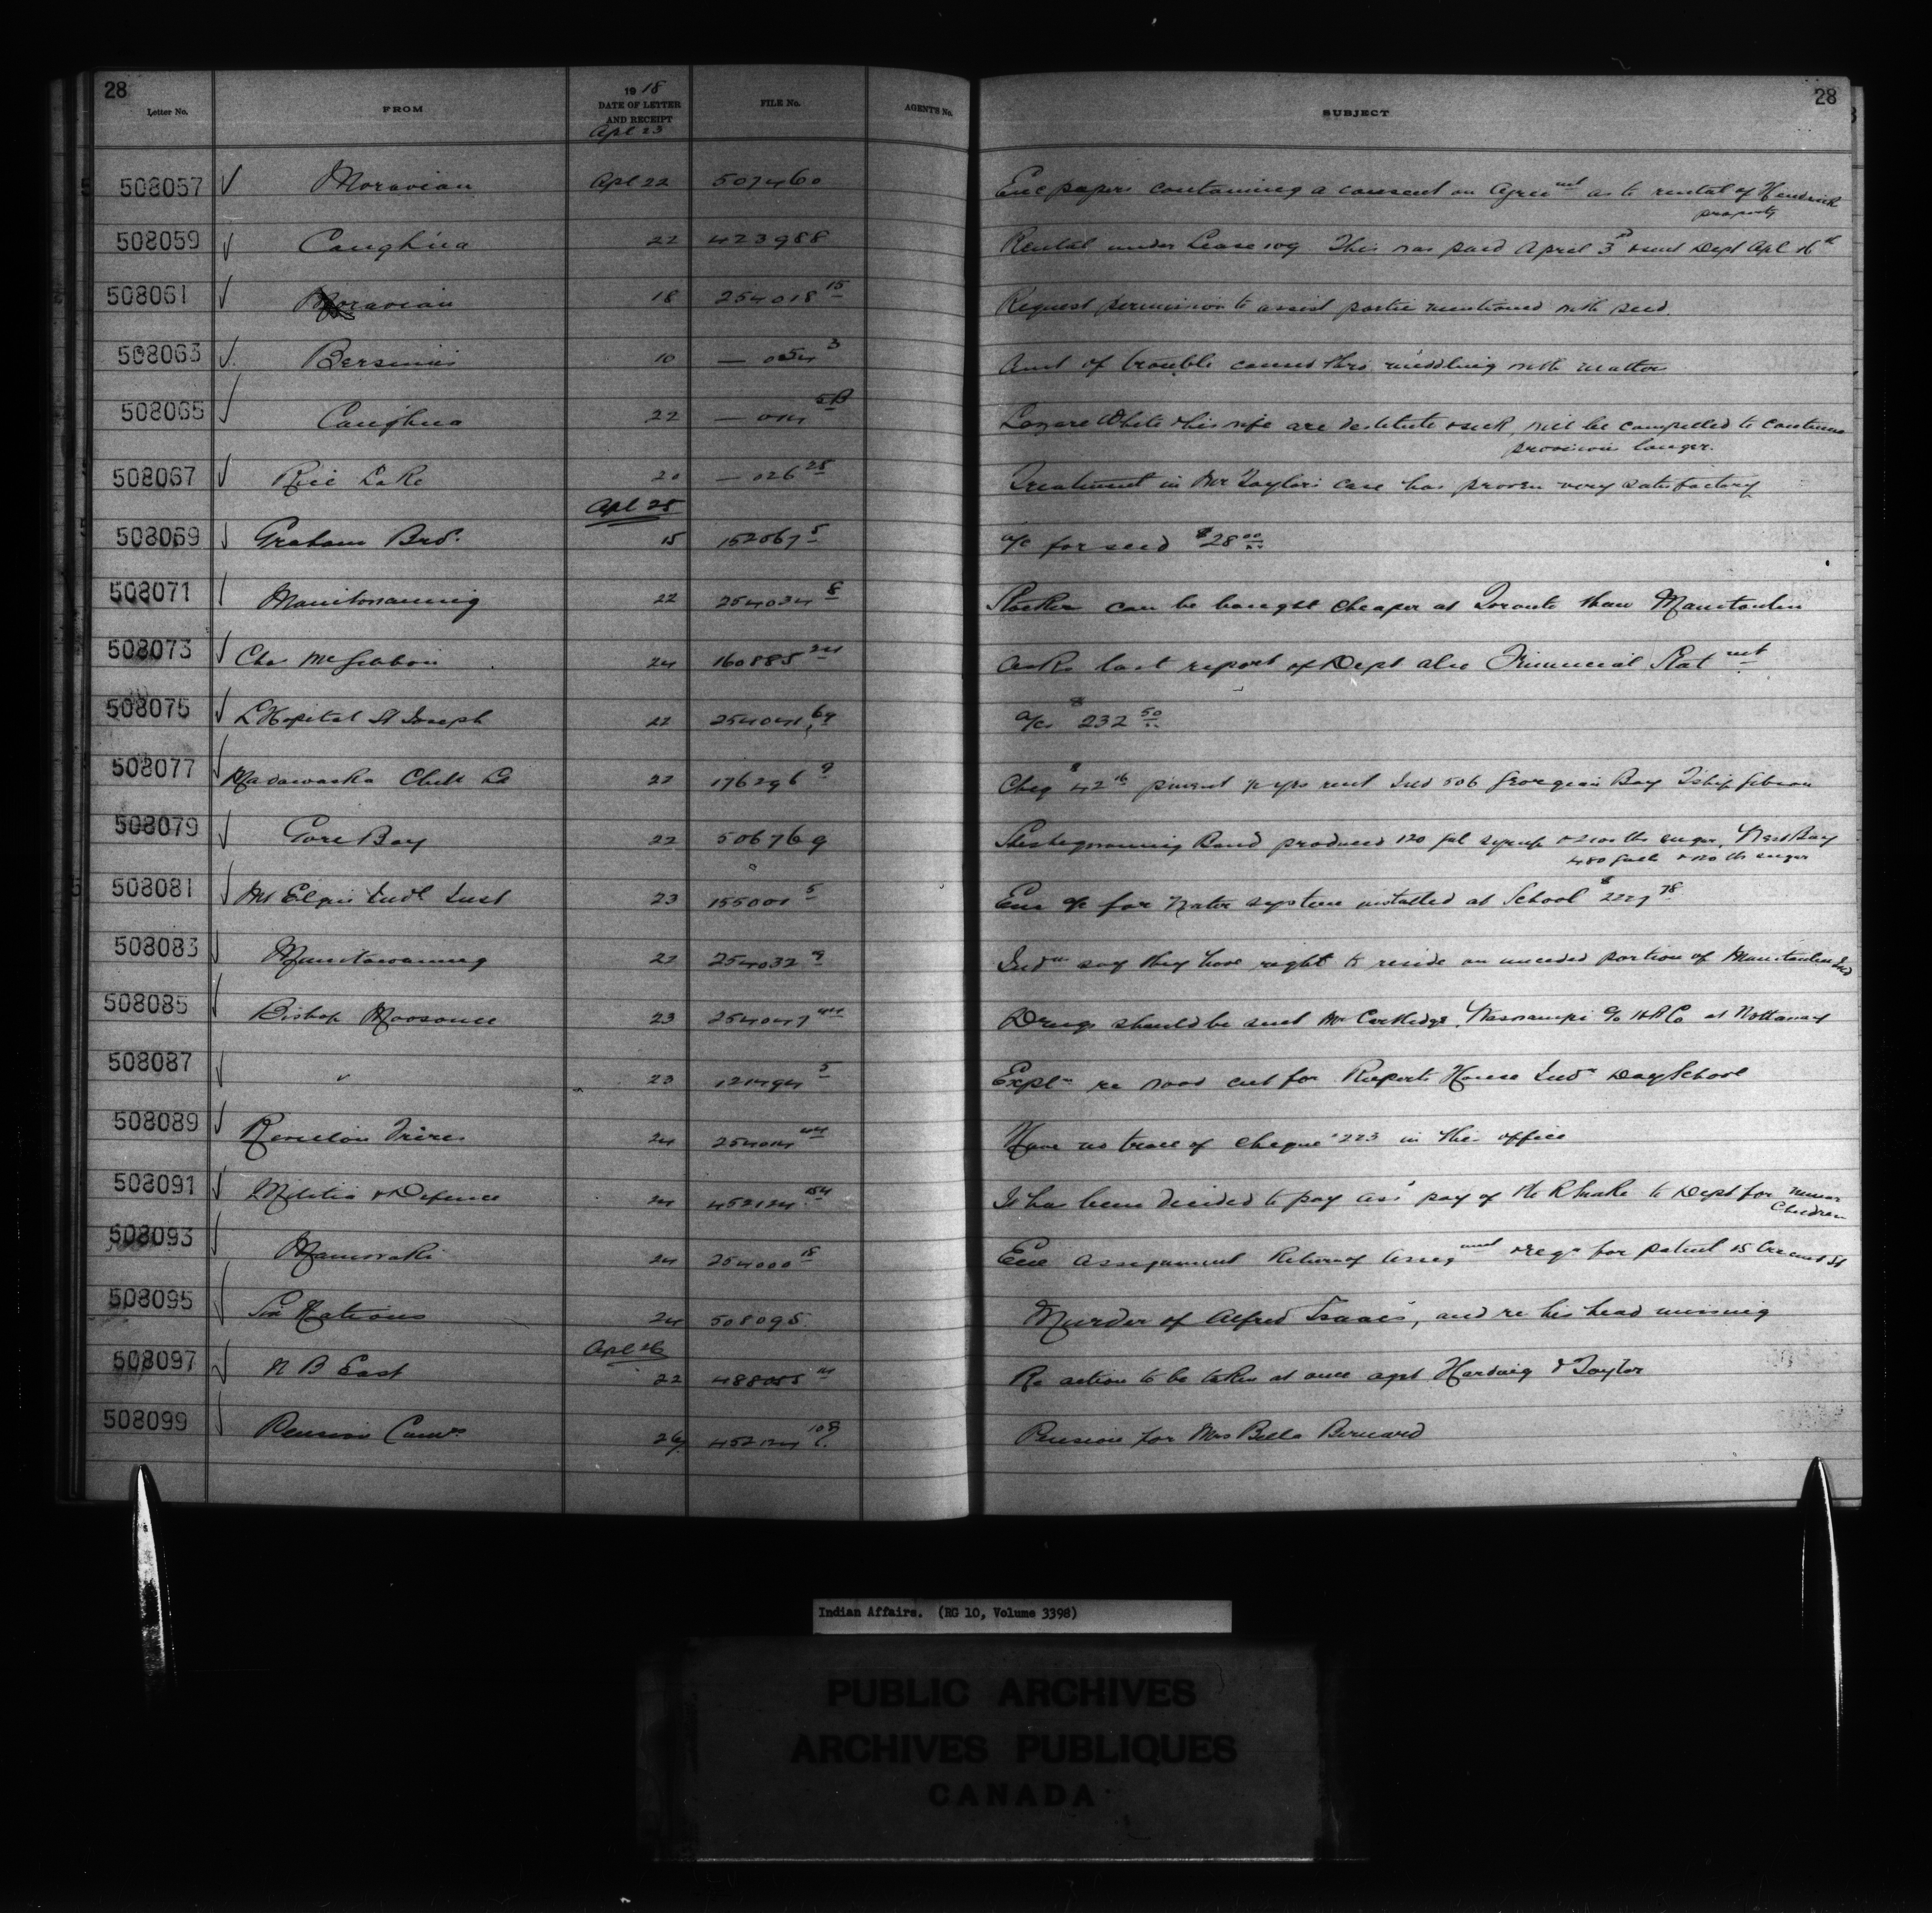 28
28
Letter No. FROM 1918 DATE OF LETTER AND RECEIPT FILE No. AGENT'S No. SUBJECT
Apl 23
508057 Moravian Apl 22 507460 Enc papers containing a consent on Agreemt as to rental of Hendrick
property
508059 Caughna 22 423988 Rental under Lease 109 This was paid April 3rd & sent Dept Apl 16th
508061 Moravian 18 254018 15 Request permission to assist partie mentioned with seed.
508063 Bersimis 10 — 054 3 Amt of trouble caused thro meddling with matter
508065 Caughna 22 — Lazare White & his wife are destitute & sick, will be compelled to continue
provision longer.
508067 Rice Lake 20 — 026 25 Treatment in Mr Taylor's case has proven very satisfactory
Apl 25
508069 Graham Bros. 15 152067 5 a/c for seed $28 00
508071 Manitowaning 22 254034 8 can be bought cheaper at Toronto than Manitoulin
508073 Cha McGibbon 24 160885 24 Asks last report of Dept also Financial Statmt
508075 L'Hopital St Joseph 22 254041 69 a/cs $232 50
508077 Madawaska Club Ld 22 176296 9 Cheq $42 16 rent Ind 506 Georgian Bay Tship Gibson
508079 Gore Bay 22 506769 Sheshegwaning Band produced 120 gal syrup sugar, West Bay
480 galls & 120 lb sugar
508081 Mt Elgin Indl Inst 23 155001 5 Enc a/c for water system installed at School $2227 78
508083 Manitowaning 22 254032 9 Indns say they have right to reside on unceded portion of Manitoulin Isd
508085 Bishop Moosonee 23 254047 Drugs should be sent Mr Cartlidge, Waswanipi c/o HB Co at Nottaway
508087 " 23 121494 5 Expln re wood cut for Ruperts House Indn Day School
508089 Revillon Freres 24 254014 44 Have no trace of cheque 223 in this office
508091 Militia & Defence 24 452124 154 It has been decided to pay assd pay of Snake to Dept for minor
Children
508093 Maniwaki 24 254000 15 Enc assignment Return of Assigmmt & regn for patent
508095 Six Nations 24 508095 Murder of Alfred Isaacs, and re his head missing
Apl 26
508097 N B East 22 488055 Re action to be taken at once agst Harding & Taylor
508099 Pension Comrs 24 452124 108 Pension for Mrs Bella Bernard
Indian Affairs. (RG 10, Volume 3398)
PUBLIC ARCHIVES
ARCHIVES PUBLIQUES
CANADA